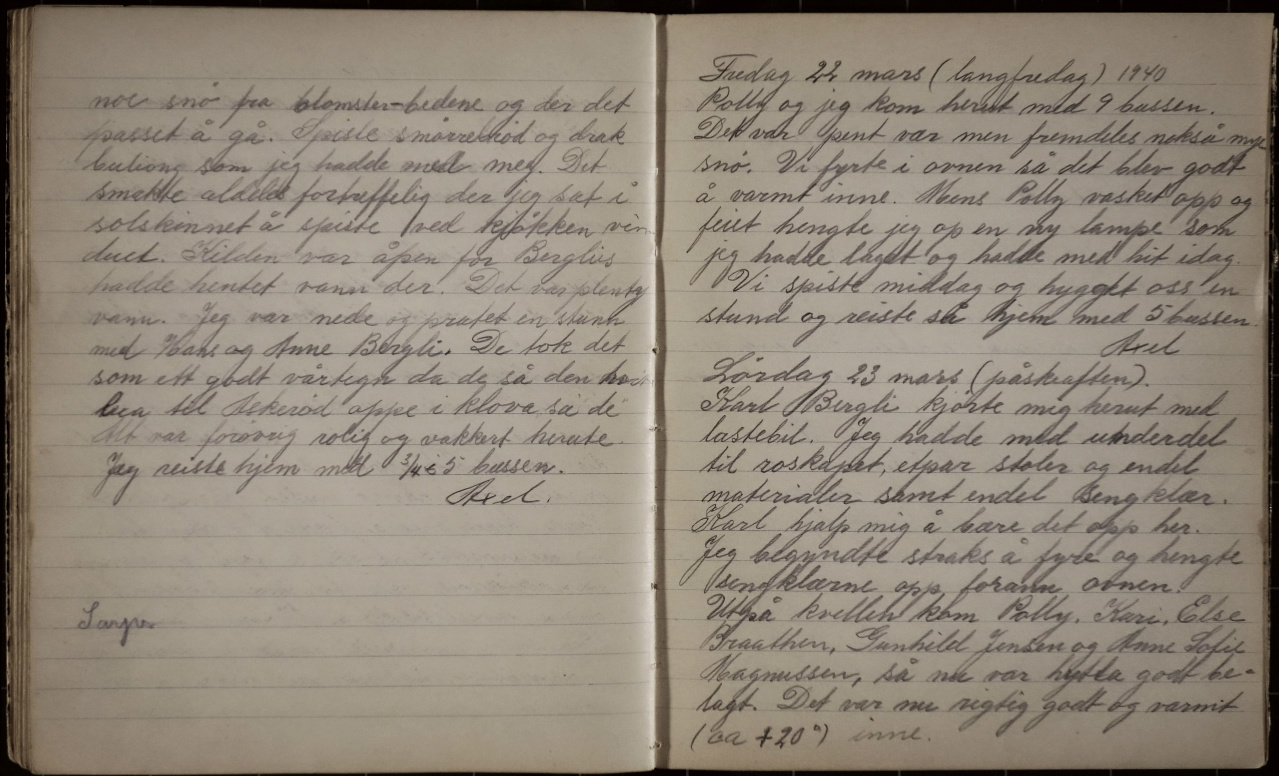 noe snø fra blomster-bedene og der det
passet å gå. Spiste smørrebrød og drak
buliong som jeg hadde med meg. Det
smakte aldeles fortreffelig der jeg sat i
solskinnet å spiste ved kjøkken vin
duet. Kilden var åpen for Berglis
hadde hentet vann der. Det var plenty
vann. Jeg var nede og pratet en stunn
med Hans og Anne Bergli. De tok det
som ett godt vårtegn da de så den
til Askerød oppe i kløva sa de
Alt var forøvrig rolig og vakkert herute.
Jeg reiste hjem med 3/4 5 bussen.
Axel.
Sarps
Fredag 22 mars (langfredag) 1940
Polly og jeg kom herut med 9 bussen.
Det var pent vær men fremdeles nokså mye
snø. Vi fyrte i ovnen så det blev godt
å varmt inne. Mens Polly vasket opp og
feiet hengte jeg op en ny lampe som
jeg hadde laget og hadde med hit idag.
Vi spiste middag og hygget oss en
stund og reiste så hjem med 5 bussen.
Axel
Lørdag 23 mars (påskeaften).
Karl Bergli kjørte meg herut med
lastebil. Jeg hadde med underdel
til roskapet, etpar stoler og endel
materialer samt endel sengklær.
Karl hjalp mig å bære det opp her.
Jeg begyndte straks å fyre og hengte
sengklærne opp forann ovnen.
Utpå kvellen kom Polly, Kari, Else
Braathen, Gunhild Jensen og Anne Sofie
Magnussen, så nu var hytta godt be-
lagt. Det var nu rigtig godt og varmt
(ca +20°) inne.